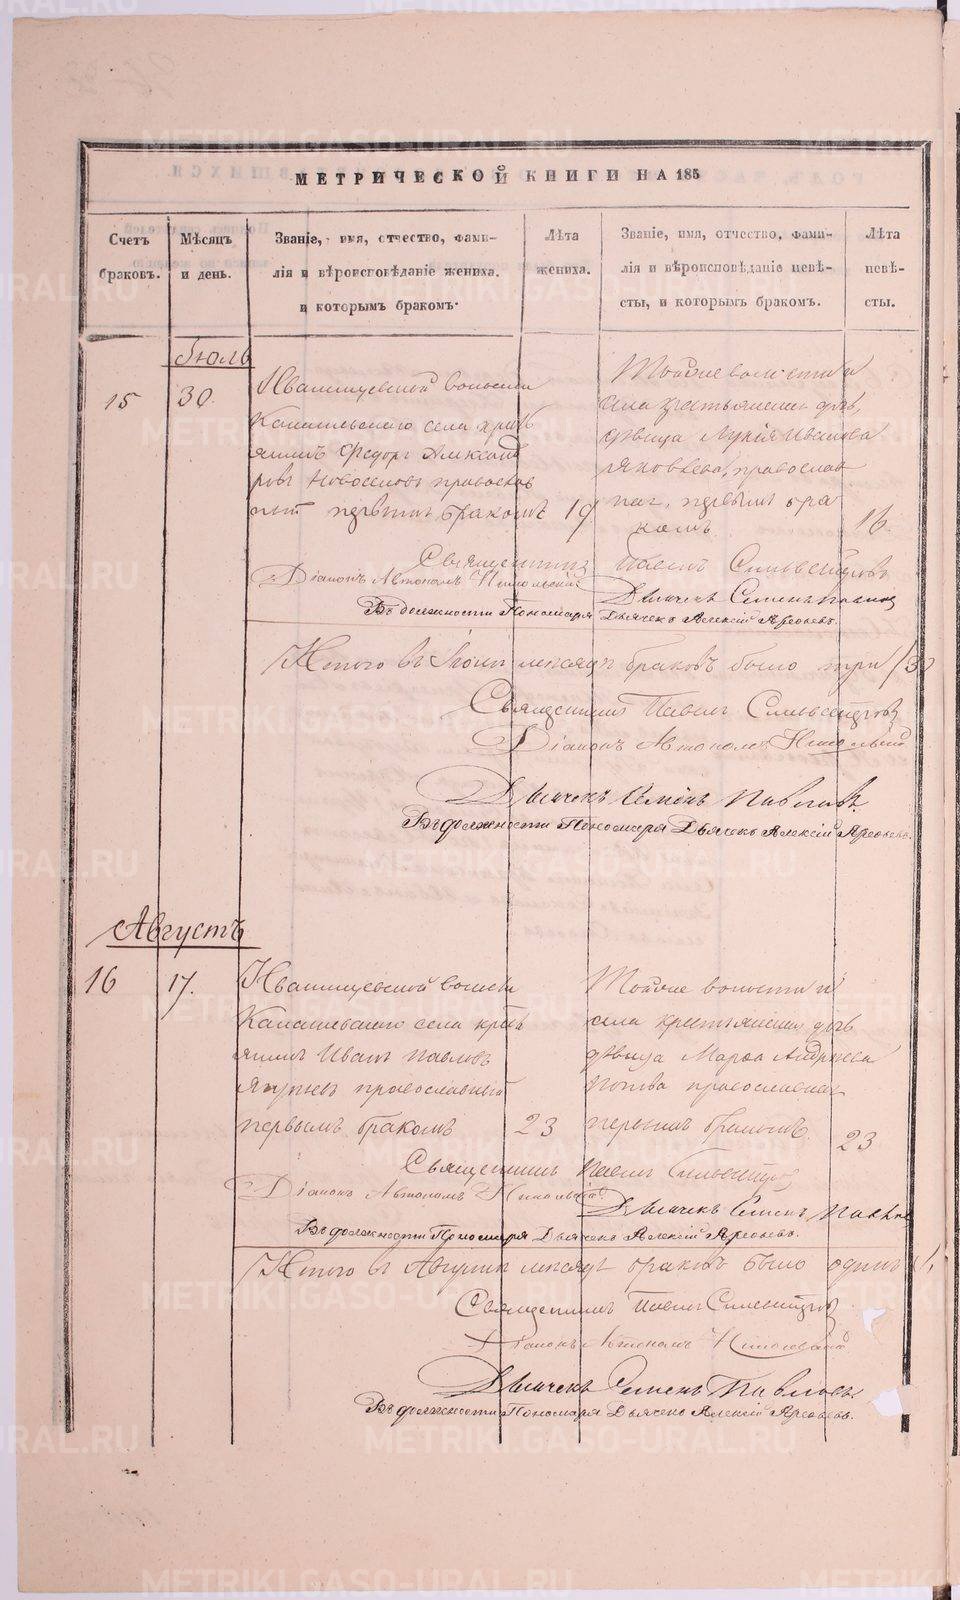 МЕТРИЧЕСКОЙ КНИГИ НА 185
Счетъ браковъ.
Мѣсяцъ и день.
Званіе, имя, отчество, фами-
лія и вѣроисповѣданіе жениха.
и которымъ бракомъ.
Лѣта жениха.
Званіе, имя, отчество, фами-
лія и вѣроисповѣданіе невѣ-
сты, и которымъ бракомъ.
Лѣта невѣ-
сты.
Іюль
15
30.
волости
села
Федоръ Александ
ровъ Новоселовъ православ
ный первымъ бракомъ
19
Тойже волости и
села крестьянская дочь,
дѣвица Лукія Иванова
Яковлева, православ
ная, первымъ бра
комъ.
16.
Священникъ Павелъ Сильвестровъ
Діаконъ Автономъ Никольскій
Дьячекъ Семенъ Павловъ
Въ должности Пономаря Дьячекъ Алексій Арефьевъ.
Итого въ Іюлѣ месяцѣ браковъ было три /3
Священникъ Павелъ Сильвестровъ
Діаконъ Автономъ Никольскій
Дьячекъ Семенъ Павловъ.
Въ должности Пономаря Дьячекъ Алексій Арефьевъ.
Августъ
16
17.
волости
села
Иванъ Павловъ
православный
первымъ бракомъ
23
Тойже волости и
села крестьянская дочь
дѣвица Марѳа Андреева
православная
первымъ бракомъ.
23
Священникъ Павелъ Сильвестровъ
Діаконъ Автономъ Никольскій
Дьячекъ Семенъ Павловъ
Въ должности Пономаря Дьячекъ Алексій Арефьевъ.
Итого въ Августѣ месяцѣ браковъ было одинъ /1,
Священникъ Павелъ Сильвестровъ
Діаконъ Автономъ Никольскій
Дьячекъ Семенъ Павловъ.
Въ должности Пономаря Дьячекъ Алексій Арефьевъ.
METRIKI.GASO-URAL.RU